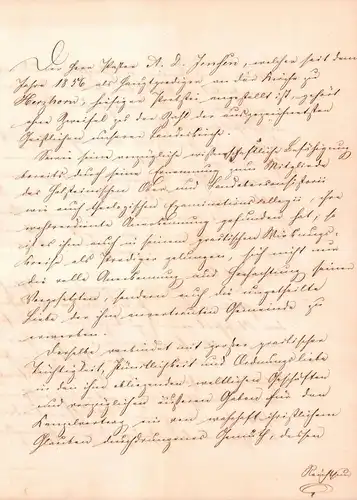 Der Herr Pastor A. D. Jensen, welcher seit dem
Jahre 1856 als Hauptprediger an der Kirche zu
Herzhorn, hiesiger Probstei angestellt ist, gehört
ohne Zweifel zu der Zahl der ausgezeichnetsten
Geistlichen unserer Landeskirche.
Wenn seine vorzügliche wissenschaftliche Befähigung
bereits durch seine Ernennung zum Mitgliede
des Holsteinischen Ober und Landconsistorii
wie auch theologischen Examinationscollegii, ihre
wohlverdiente Anerkennung gefunden hat, so
ist es ihm auch in seinem praktischen Wirkungs-
kreise als Prediger gelungen, sich nicht nur
die volle Anerkennung und Hochachtung seiner
Vorgesetzten, sondern auch die ungetheilte
Liebe der ihm anvertrauten Gemeinde zu
erwerben.
Derselbe verbindet mit großer praktischer
Tüchtigkeit, Pünktlichkeit und Ordnungsliebe
in den ihm obliegenden weltlichen Geschäften
und vorzüglichen äußeren Gaben für den
Kanzelvortrag ein von wahrhaft christlichem
Glauben durchdrungenes Gemüth, dessen